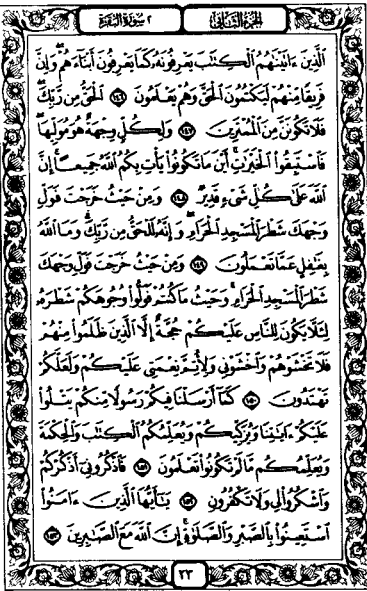 الجزء الثاني ٢ سورة البقرة
ٱلَّذِينَ ءَاتَيْنَٰهُمُ ٱلْكِتَٰبَ يَعْرِفُونَهُۥ كَمَا يَعْرِفُونَ أَبْنَآءَهُمْ وَإِنَّ
فَرِيقًا مِّنْهُمْ لَيَكْتُمُونَ ٱلْحَقَّ وَهُمْ يَعْلَمُونَ ١٤٦ ٱلْحَقُّ مِن رَّبِّكَ
فَلَا تَكُونَنَّ مِنَ ٱلْمُمْتَرِينَ ١٤٧ وَلِكُلٍّ وِجْهَةٌ هُوَ مُوَلِّيهَا
فَٱسْتَبِقُوا۟ ٱلْخَيْرَٰتِ أَيْنَ مَا تَكُونُوا۟ يَأْتِ بِكُمُ ٱللَّهُ جَمِيعًا إِنَّ
ٱللَّهَ عَلَىٰ كُلِّ شَىْءٍ قَدِيرٌ ١٤٨ وَمِنْ حَيْثُ خَرَجْتَ فَوَلِّ
وَجْهَكَ شَطْرَ ٱلْمَسْجِدِ ٱلْحَرَامِ وَإِنَّهُۥ لَلْحَقُّ مِن رَّبِّكَ وَمَا ٱللَّهُ
بِغَٰفِلٍ عَمَّا تَعْمَلُونَ ١٤٩ وَمِنْ حَيْثُ خَرَجْتَ فَوَلِّ وَجْهَكَ
شَطْرَ ٱلْمَسْجِدِ ٱلْحَرَامِ وَحَيْثُ مَا كُنتُمْ فَوَلُّوا۟ وُجُوهَكُمْ شَطْرَهُۥ
لِئَلَّا يَكُونَ لِلنَّاسِ عَلَيْكُمْ حُجَّةٌ إِلَّا ٱلَّذِينَ ظَلَمُوا۟ مِنْهُمْ
فَلَا تَخْشَوْهُمْ وَٱخْشَوْنِى وَلِأُتِمَّ نِعْمَتِى عَلَيْكُمْ وَلَعَلَّكُمْ
تَهْتَدُونَ ١٥٠ كَمَآ أَرْسَلْنَا فِيكُمْ رَسُولًا مِّنكُمْ يَتْلُوا۟
عَلَيْكُمْ ءَايَٰتِنَا وَيُزَكِّيكُمْ وَيُعَلِّمُكُمُ ٱلْكِتَٰبَ وَٱلْحِكْمَةَ
وَيُعَلِّمُكُم مَّا لَمْ تَكُونُوا۟ تَعْلَمُونَ ١٥١ فَٱذْكُرُونِىٓ أَذْكُرْكُمْ
وَٱشْكُرُوا۟ لِى وَلَا تَكْفُرُونِ ١٥٢ يَٰٓأَيُّهَا ٱلَّذِينَ ءَامَنُوا۟
ٱسْتَعِينُوا۟ بِٱلصَّبْرِ وَٱلصَّلَوٰةِ إِنَّ ٱللَّهَ مَعَ ٱلصَّٰبِرِينَ ١٥٣
٢٣